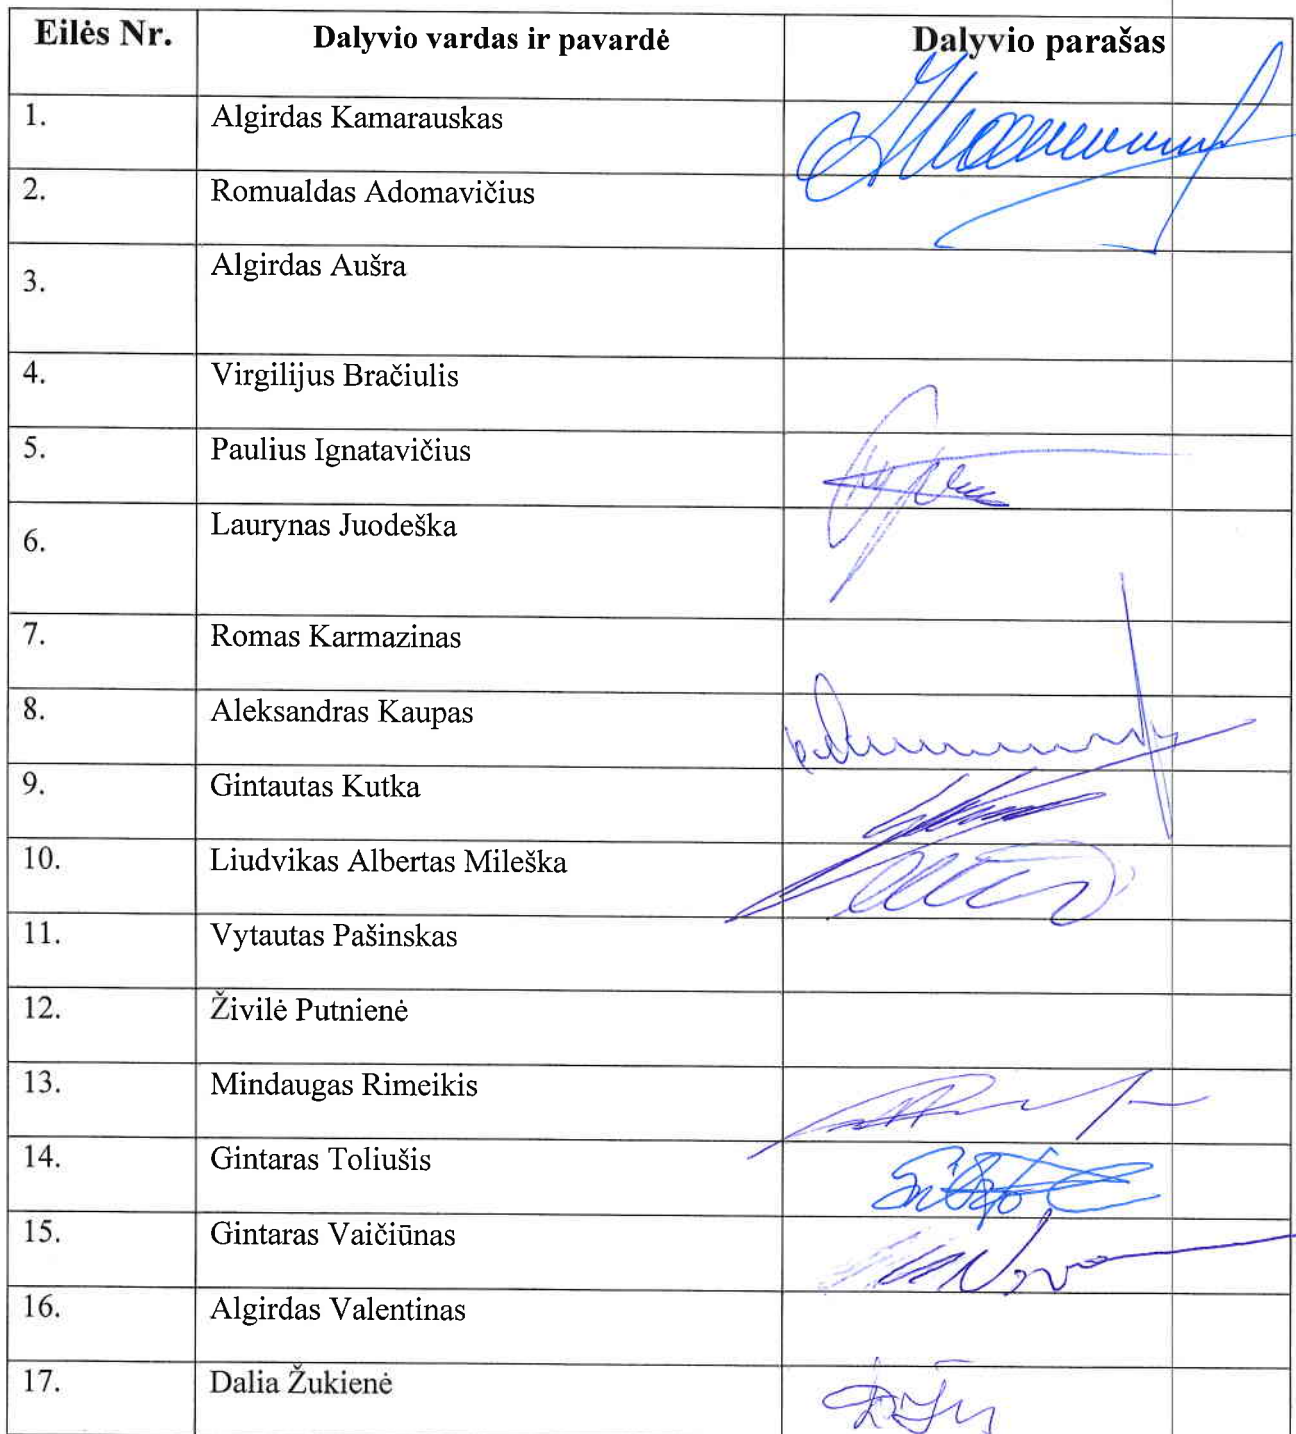 Eilės Nr. Dalyvio vardas ir pavardė Dalyvio parašas
1. Algirdas Kamarauskas
2. Romualdas Adomavičius
3. Algirdas Aušra
4. Virgilijus Bračiulis
5. Paulius Ignatavičius
6. Laurynas Juodeška
7. Romas Karmazinas
8. Aleksandras Kaupas
9. Gintautas Kutka
10. Liudvikas Albertas Mileška
11. Vytautas Pašinskas
12. Živilė Putnienė
13. Mindaugas Rimeikis
14. Gintaras Toliušis
15. Gintaras Vaičiūnas
16. Algirdas Valentinas
17. Dalia Žukienė